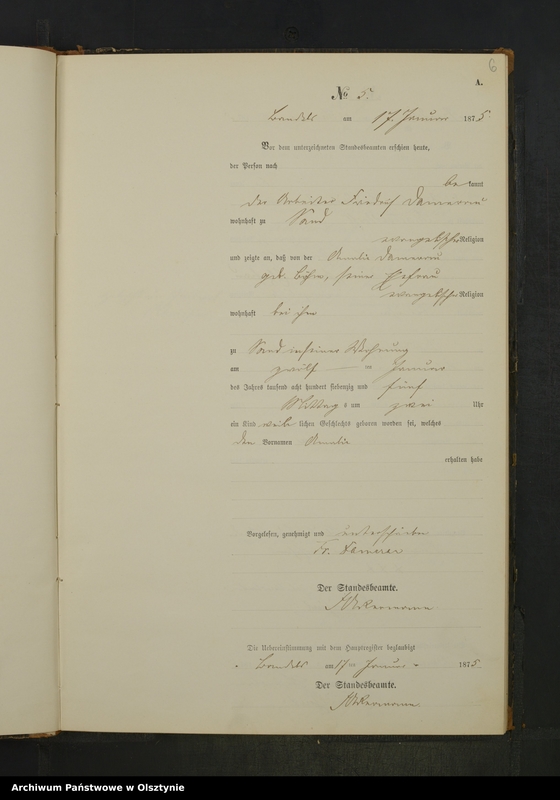 6
A.
№ 5.
Bandels am 17. Januar 1875
Vor dem unterzeichneten Standesbeamten erschien heute,
der Person nach
be kannt
der Arbeiter Friedrich Damerau
wohnhaft zu Sand
evangelischer Religion
und zeigte an, daß von der Amalie Damerau
geb. Böhm, seiner Ehefrau
evangelischer Religion
wohnhaft bei ihm
zu Sand in seiner Wohnung
am zwölf ten Januar
des Jahres tausend acht hundert siebenzig und fünf
Mittag s um zwei Uhr
ein Kind weib lichen Geschlechts geboren worden sei, welches
den Vornamen Amalie
erhalten habe
Vorgelesen, genehmigt und unterschrieben
Fr.
Der Standesbeamte.
Die Uebereinstimmung mit dem Hauptregister beglaubigt
Bandels am 17 ten Januar 1875
Der Standesbeamte.
Archiwum Państwowe w Olsztynie